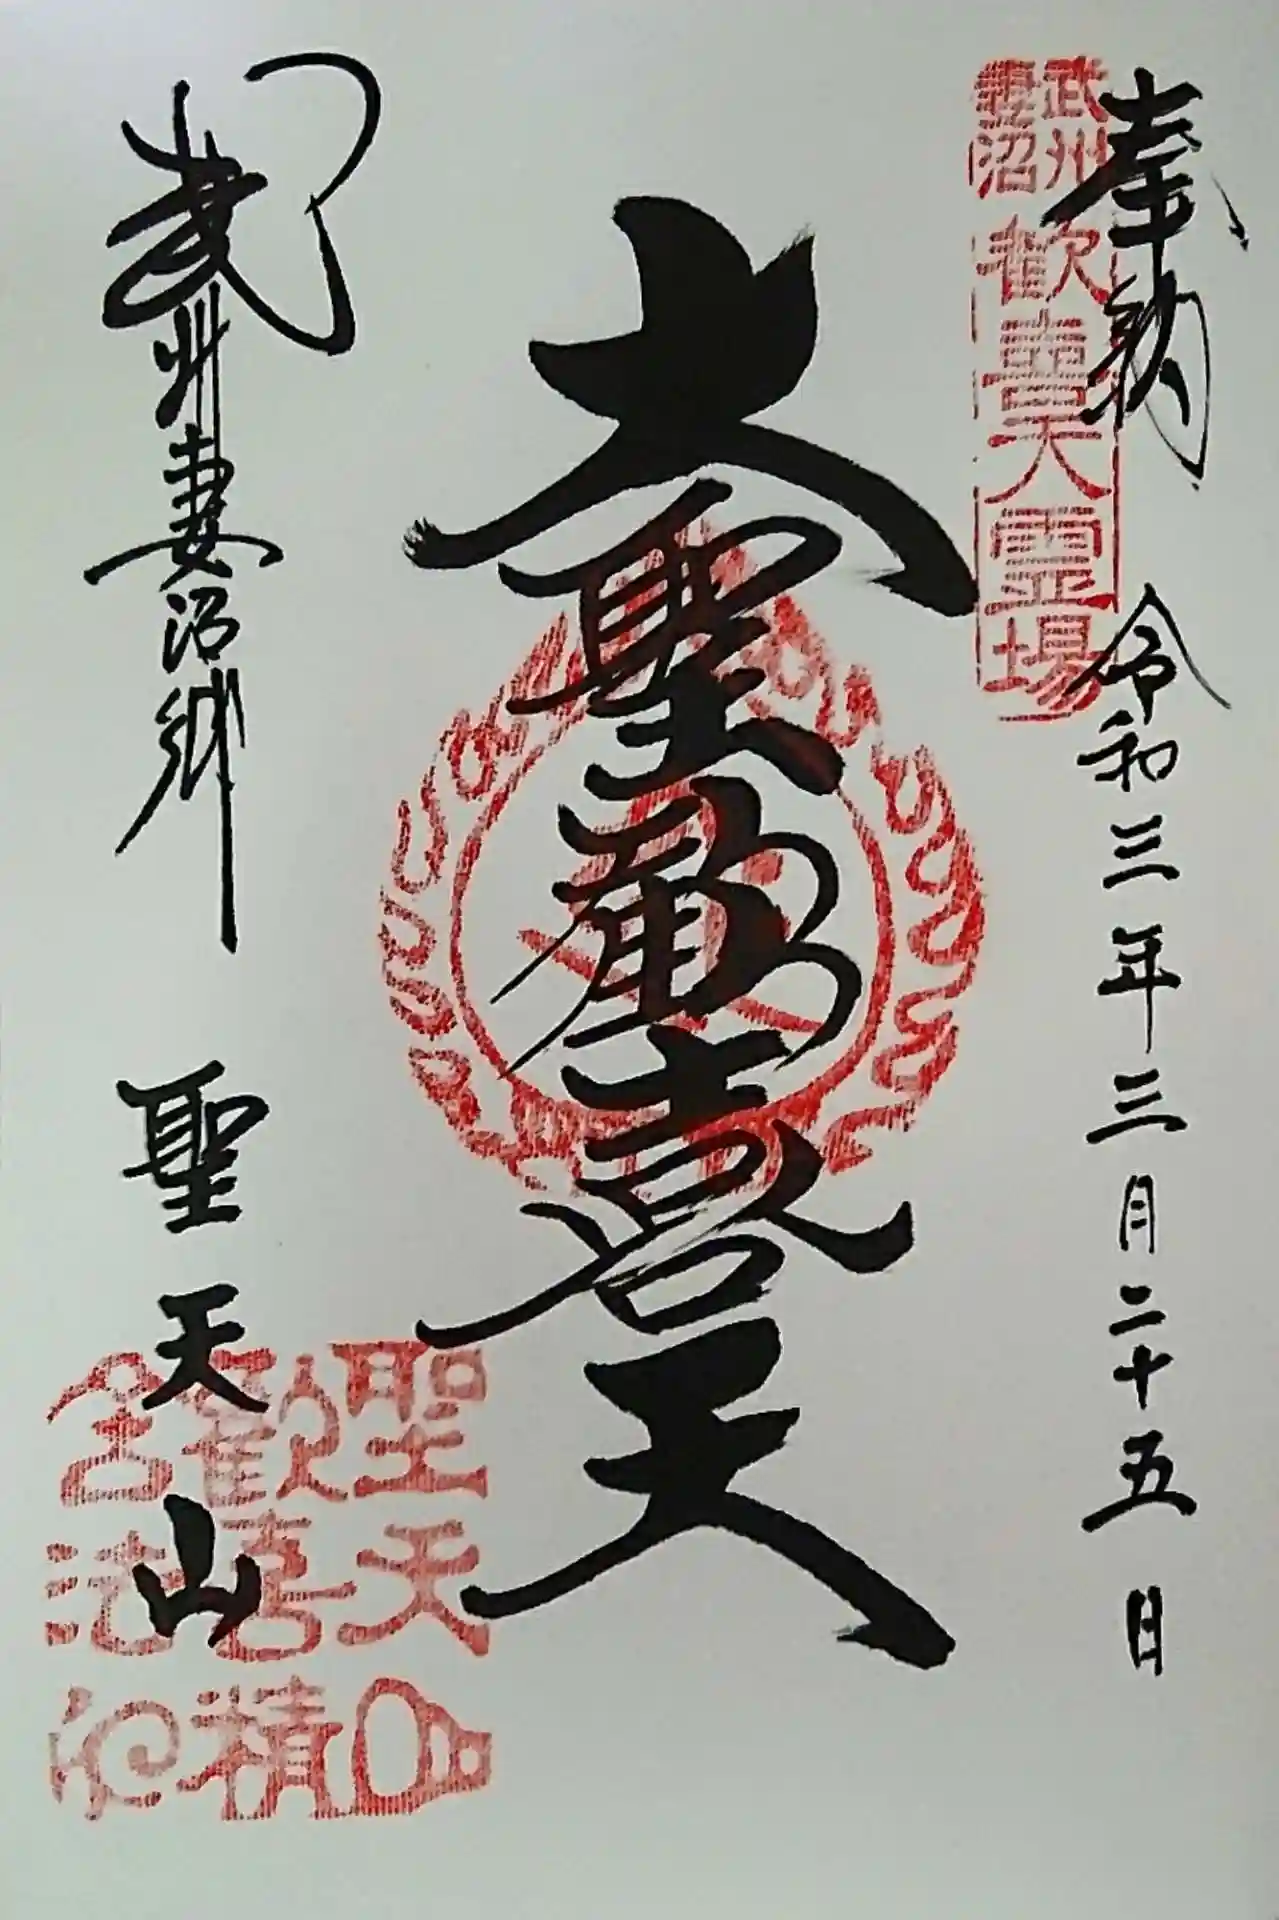 奉納 令和三年三月二十五日
武州
妻沼
歓喜天霊場
大聖歓喜天
武州妻沼郷 聖天山
聖天山
歓喜